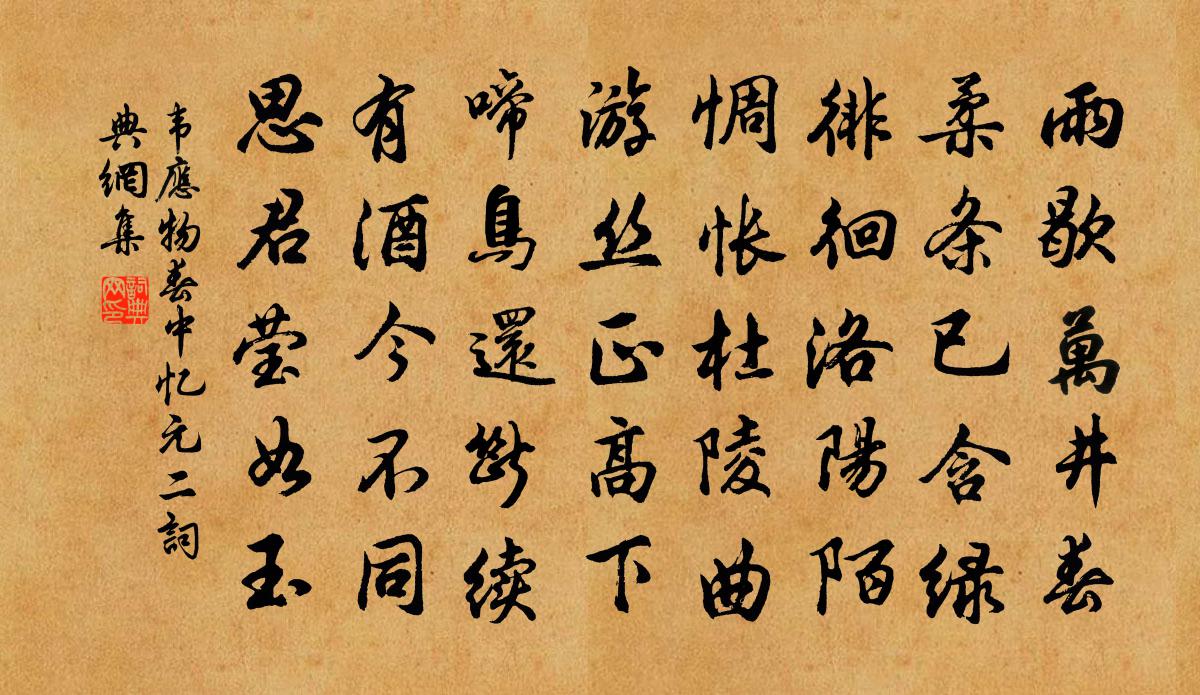 雨歇萬井春
柔条已含緑
徘徊洛陽陌
惆怅杜陵曲
游丝正高下
啼鳥還斷续
有酒今不同
思君莹如玉
韦應物春中忆元二詞
典網集
詞典
网印